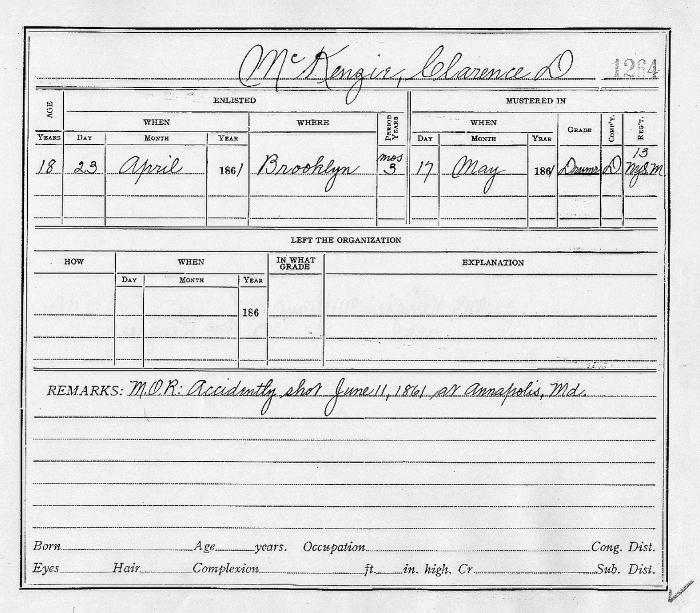 McKenzie, Clarence D 1264
AGE ENLISTED MUSTERED IN
WHEN WHERE PERIOD YEARS WHEN GRADE COMP'Y. REG'T.
YEARS DAY MONTH YEAR DAY MONTH YEAR
18 23 April 1861 Brooklyn mos 3 17 May 1861 Drumr D 13 NYSM
LEFT THE ORGANIZATION
HOW WHEN IN WHAT GRADE EXPLANATION
DAY MONTH YEAR
186
REMARKS: M.O.R: Accidently shot June 11, 1861 at Annapolis, Md.
Born Age years. Occupation Cong. Dist.
Eyes Hair Complexion ft. in. high. Cr Sub. Dist.